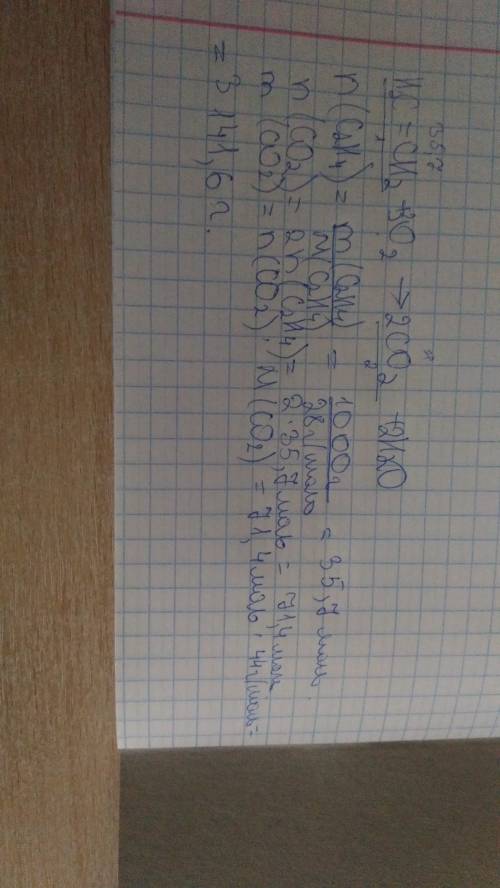 H₂C = CH₂ + 3O₂ → 2CO₂ + 2H₂O
1 2
n(C₂H₄) = m(C₂H₄) / M(C₂H₄) = 1000г / 28г/моль = 35,7 моль.
n(CO₂) = 2n(C₂H₄) = 2 · 35,7 моль = 71,4 моль
m(CO₂) = n(CO₂) · M(CO₂) = 71,4 моль · 44г/моль =
= 3 141,6 г.